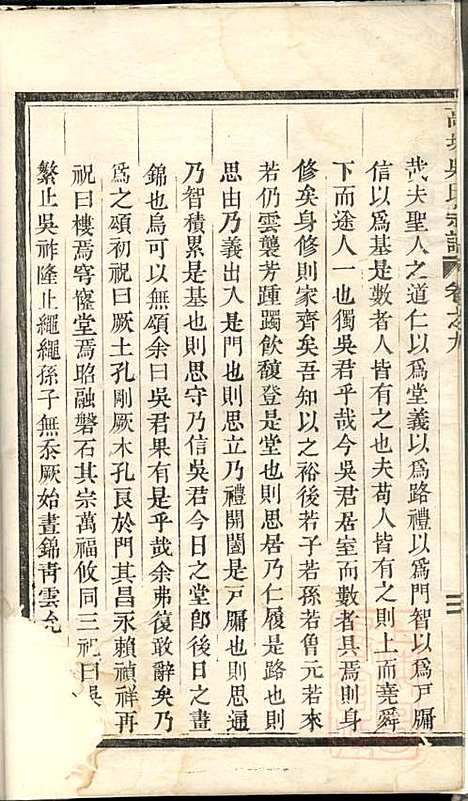 吳氏宗譜 卷之九 三
哉夫聖人之道仁以爲堂義以爲路禮以爲門智以爲戸牖
信以爲基是數者人皆有之也夫苟人皆有之則上而堯舜
下而途人一也獨吳君乎哉今吳君居室而數者具焉則身
修矣身修則家齊矣吾知以之裕後若子若孫若魯元若來
若仍雲襲芳踵躅飲馥登是堂也則思居乃仁履是路也則
思由乃義出入是門也則思立乃禮開闔是戸牖也則思通
乃智積累是基也則思守乃信吳君今日之堂卽後日之晝
錦也烏可以無頌余曰吳君果有是乎哉余弗復敢辭矣乃
爲之頌初祝曰厥土孔剛厥木孔良於門其昌永賴禎祥再
祝曰樓焉穹窿堂焉昭融磐石其宗萬福攸同三祝曰吳
繁止吳祚隆止繩繩孫子無忝厥始晝錦靑雲允